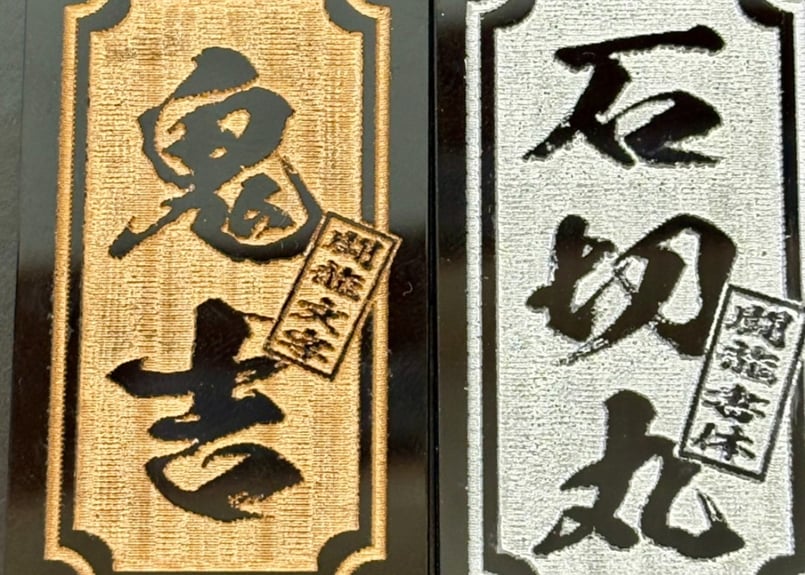 鬼吉
闘龍文字
石切丸
闘龍書体